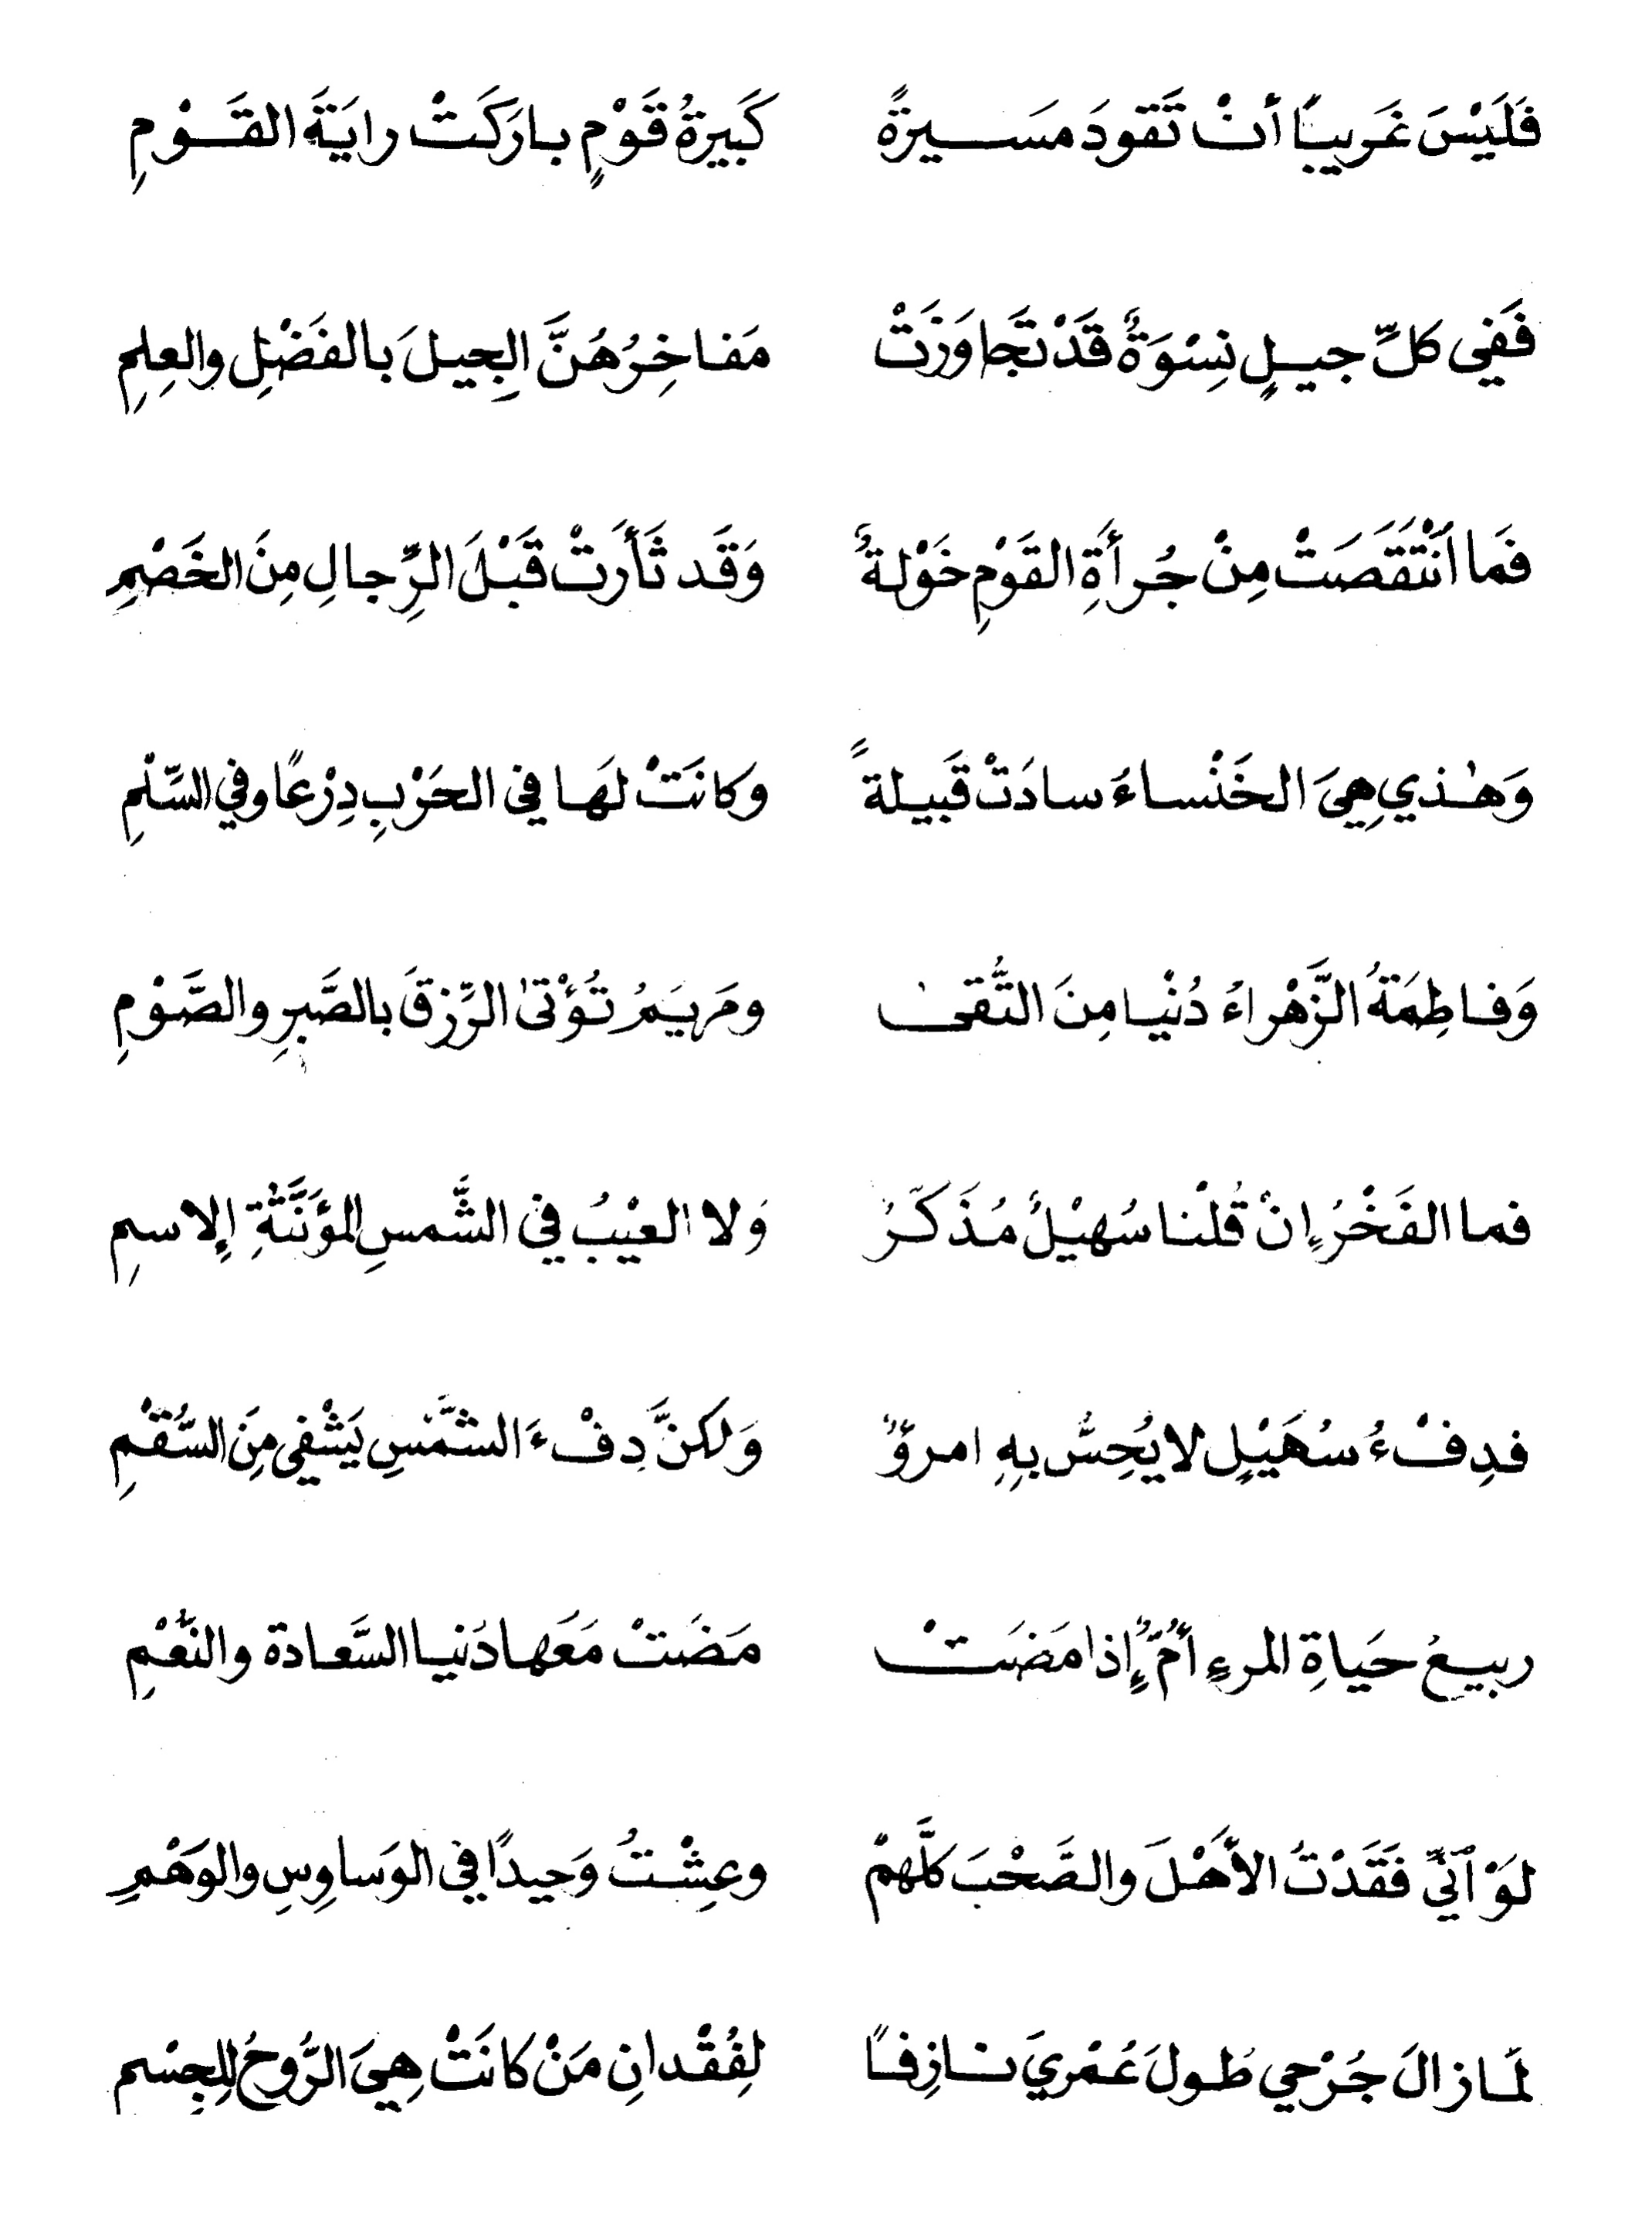 فَلَيْسَ غَرِيبًا أنْ تَقودَ مَسيرةً كَبيرةُ قَوْمٍ بارَكَتْ رايَةَ القَوْمِ
فَفِي كلِّ جيلٍ نِسْوَةٌ قَدْ تَجاوَزَتْ مَفاخِرُهُنَّ الجِيلَ بالفَضْلِ والعِلمِ
فَما انْتَقَصَتْ مِنْ جُرأَةِ القَوْمِ خَوْلةٌ وَقَد ثَأَرَتْ قَبْلَ الرِّجالِ مِنَ الخَصْمِ
وَهٰذي هِيَ الخَنْساءَ سادَتْ قَبيلةً وكانَتْ لهَا في الحَرْبِ دِرْعًا وفي السِّلْمِ
وَفاطِمَةُ الزَّهْراءُ دُنْيا مِنَ التُّقىٰ ومَريَمُ تُؤْتىٰ الرِّزقَ بالصَّبرِ والصَّوْمِ
فما الفَخْرُ إنْ قُلْنا سُهيْلٌ مُذَكَّرٌ وَلا العَيْبُ في الشَّمسِ المؤَنَّثةِ الاسمِ
فدِفْءُ سُهَيْلٍ لا يُحِسُّ بهِ امرؤٌ وَلكنَّ دِفْءَ الشَّمْسِ يَشْفِي مِنَ السُّقْمِ
ربيعُ حَياةِ المرءِ أُمٌّ إذا مَضَتْ مَضَتْ مَعَها دُنيا السَّعادة والنُّعْمِ
لَوْ آنّي فَقَدْتُ الأهْلَ والصَّحْبَ كلَّهمْ وعِشْتُ وَحيدًا في الوَساوِسِ والوَهْمِ
لمَا زالَ جُرْحي طُولَ عُمْرِيَ نازِفًا لِفُقْدانِ مَنْ كانَتْ هِيَ الرُّوحُ للِجِسْمِ